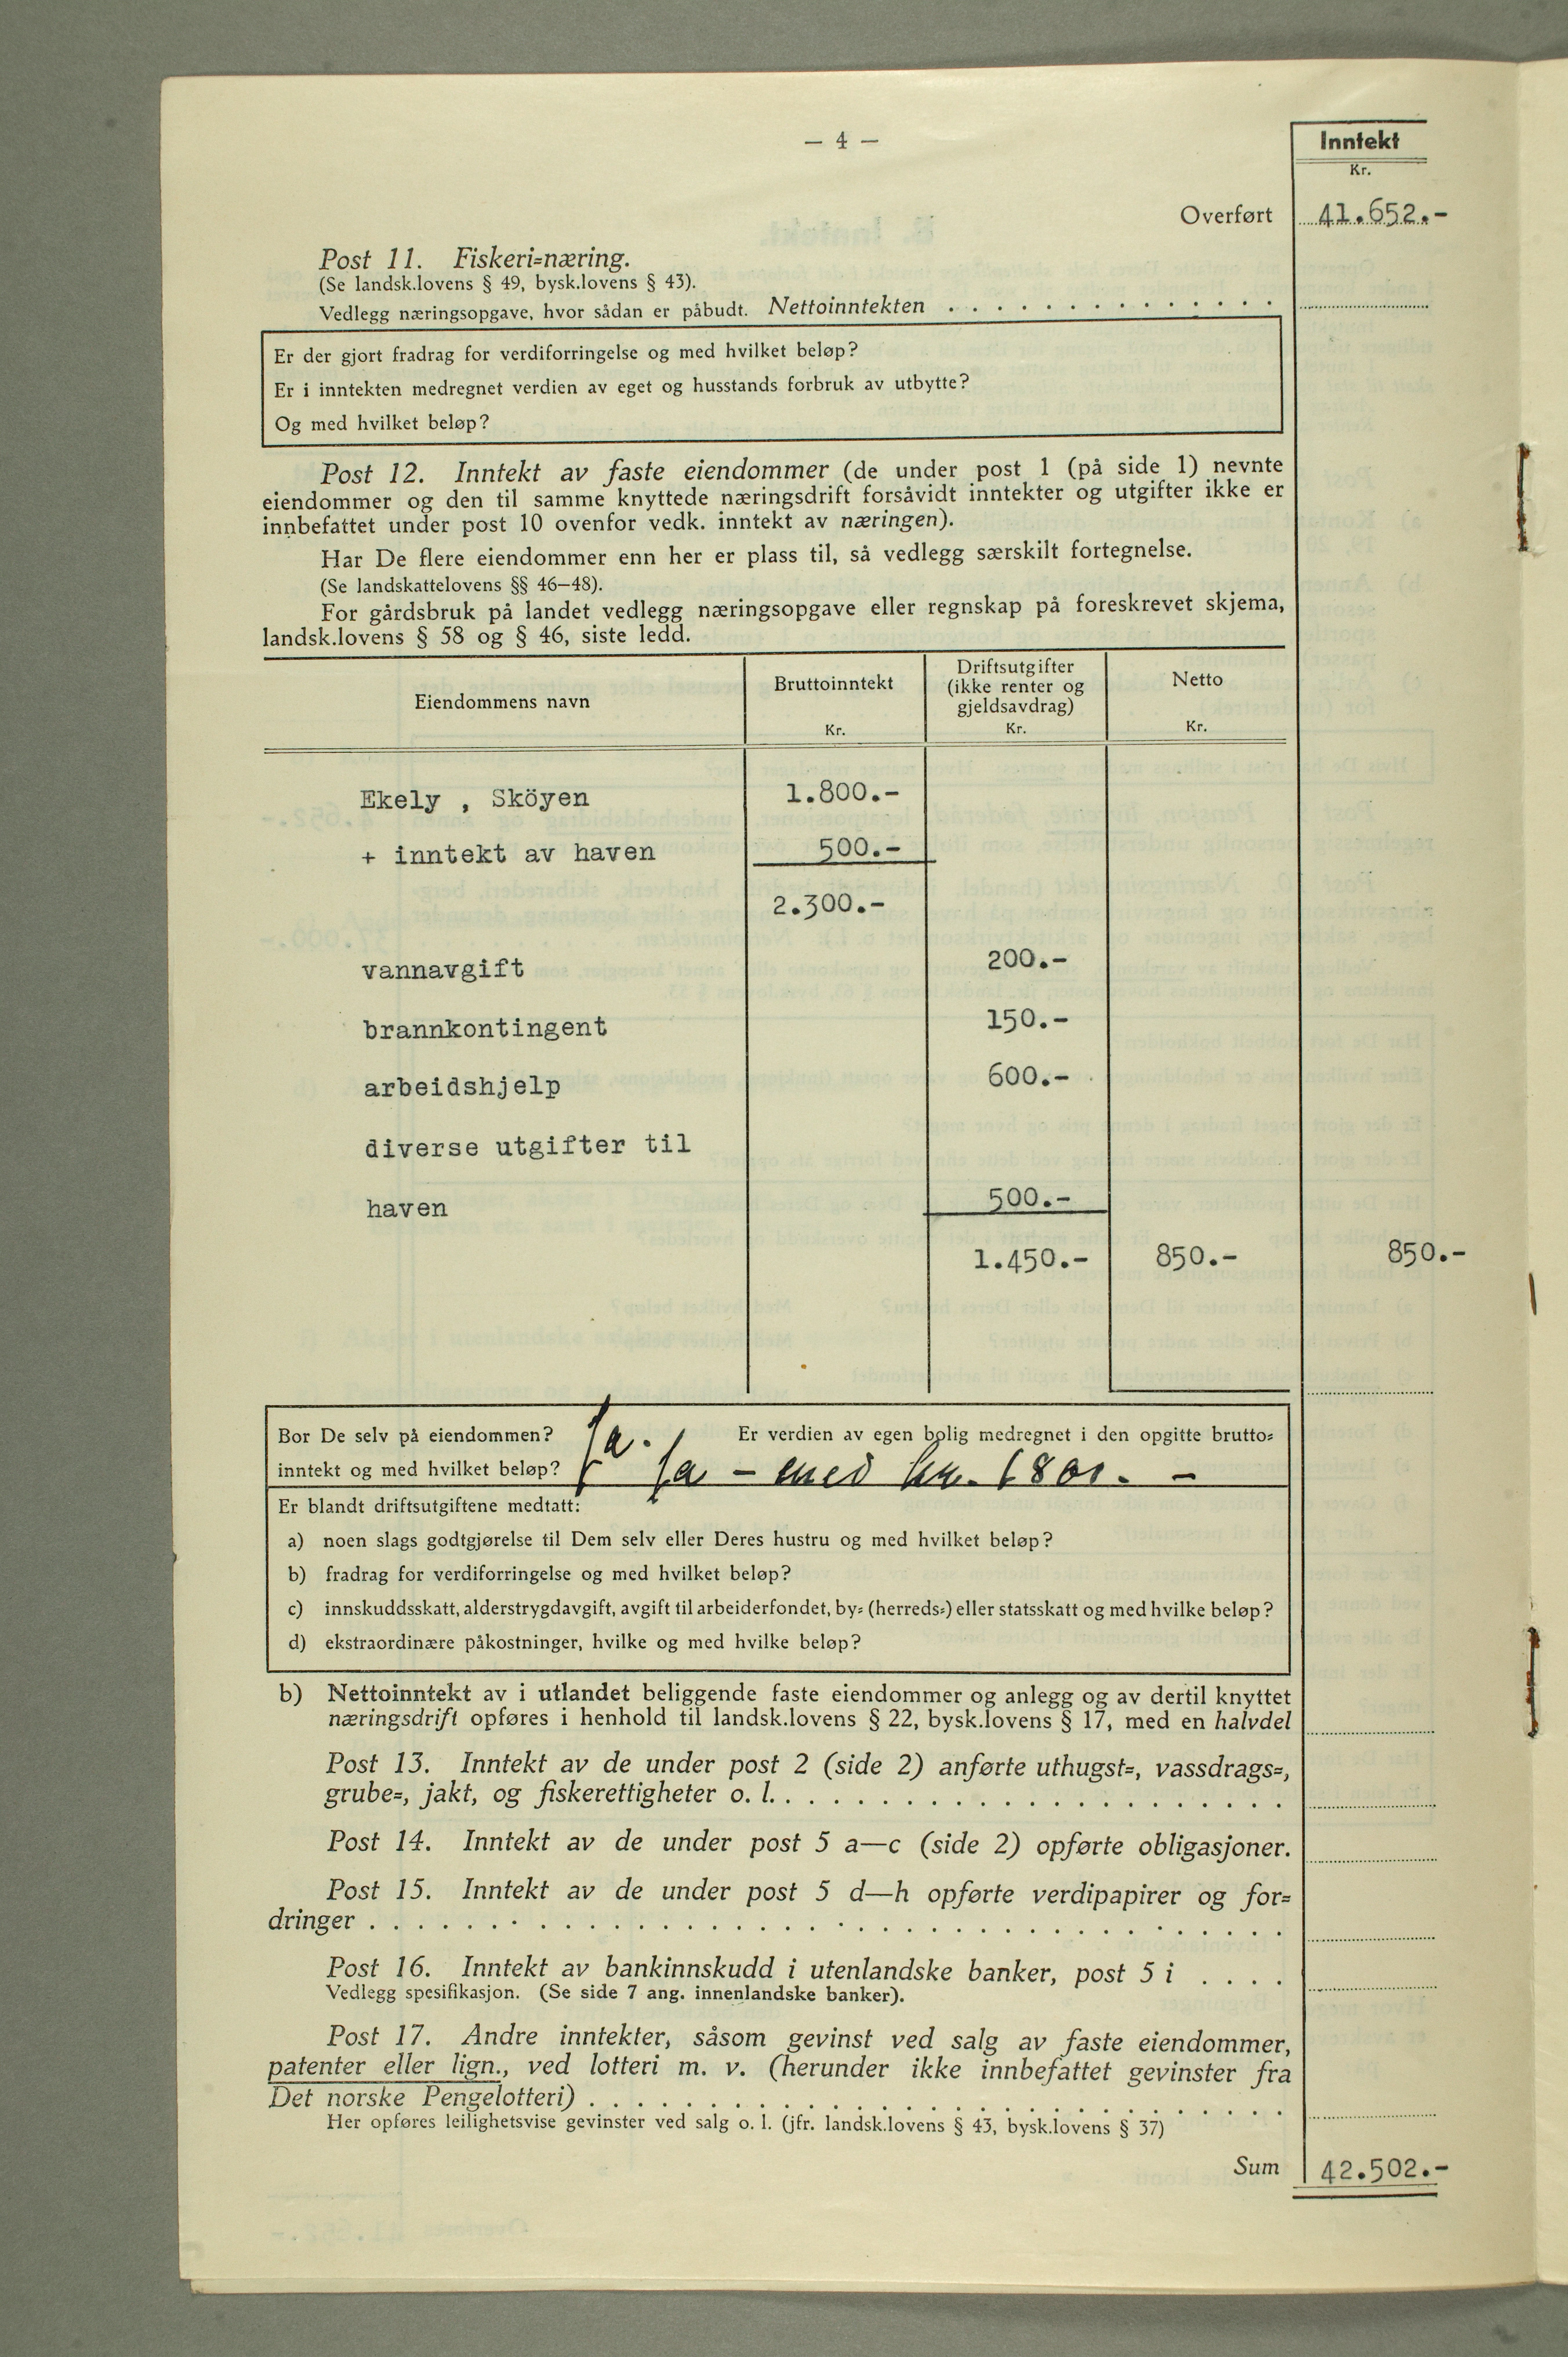 — 4 —
Inntekt
Kr.
Overført 41.652.-
Post 11. Fiskeri=næring.
(Se landsk.lovens § 49, bysk.lovens § 43).
Vedlegg næringsopgave, hvor sådan er påbudt. Nettoinntekten . . . . . . . . . . . . . .
Er der gjort fradrag for verdiforringelse og med hvilket beløp?
Er i inntekten medregnet verdien av eget og husstands forbruk av utbytte?
Og med hvilket beløp?
Post 12. Inntekt av faste eiendommer (de under post 1 (på side 1) nevnte
eiendommer og den til samme knyttede næringsdrift forsåvidt inntekter og utgifter ikke er
innbefattet under post 10 ovenfor vedk. inntekt av næringen).
Har De flere eiendommer enn her er plass til, så vedlegg særskilt fortegnelse.
(Se landskattelovens §§ 46—48).
For gårdsbruk på landet vedlegg næringsopgave eller regnskap på foreskrevet skjema,
landsk.lovens § 58 og § 46, siste ledd.
Eiendommens navn
Bruttoinntekt
Kr.
Driftsutgifter
(ikke renter og
gjeldsavdrag)
Kr.
Netto
Kr.
Ekely , Sköyen 1.800.-
+ inntekt av haven 500.-
2.300.-
vannavgift 200.-
brannkontingent 150.-
arbeidshjelp 600.-
diverse utgifter til
haven 500.-
1.450.- 850.- 850.-
Bor De selv på eiendommen? Ja. Er verdien av egen bolig medregnet i den opgitte brutto=
inntekt og med hvilket beløp? Ja – med kr. 1800. –
Er blandt driftsutgiftene medtatt:
a) noen slags godtgjørelse til Dem selv eller Deres hustru og med hvilket beløp?
b) fradrag for verdiforringelse og med hvilket beløp?
c) innskuddsskatt, alderstrygdavgift, avgift til arbeiderfondet, by= (herreds=) eller statsskatt og med hvilke beløp?
d) ekstraordinære påkostninger, hvilke og med hvilke beløp?
b) Nettoinntekt av i utlandet beliggende faste eiendommer og anlegg og av dertil knyttet
næringsdrift opføres i henhold til landsk.lovens § 22, bysk.lovens § 17, med en halvdel
Post 13. Inntekt av de under post 2 (side 2) anførte uthugst=, vassdrags=,
grube=, jakt, og fiskerettigheter o. l. . . . . . . . . . . . . . . . . . . . . .
Post 14. Inntekt av de under post 5 a—c (side 2) opførte obligasjoner.
Post 15. Inntekt av de under post 5 d—h opførte verdipapirer og for=
dringer . . . . . . . . . . . . . . . . . . . . . . . . . . . . . . . . . . .
Post 16. Inntekt av bankinnskudd i utenlandske banker, post 5 i . . . .
Vedlegg spesifikasjon. (Se side 7 ang. innenlandske banker).
Post 17. Andre inntekter, såsom gevinst ved salg av faste eiendommer,
patenter eller lign., ved lotteri m. v. (herunder ikke innbefattet gevinster fra
Det norske Pengelotteri) . . . . . . . . . . . . . . . . . . . . . . . . . . .
Her opføres leilighetsvise gevinster ved salg o. l. (jfr. landsk.lovens § 43, bysk.lovens § 37)
Sum 42.502.-